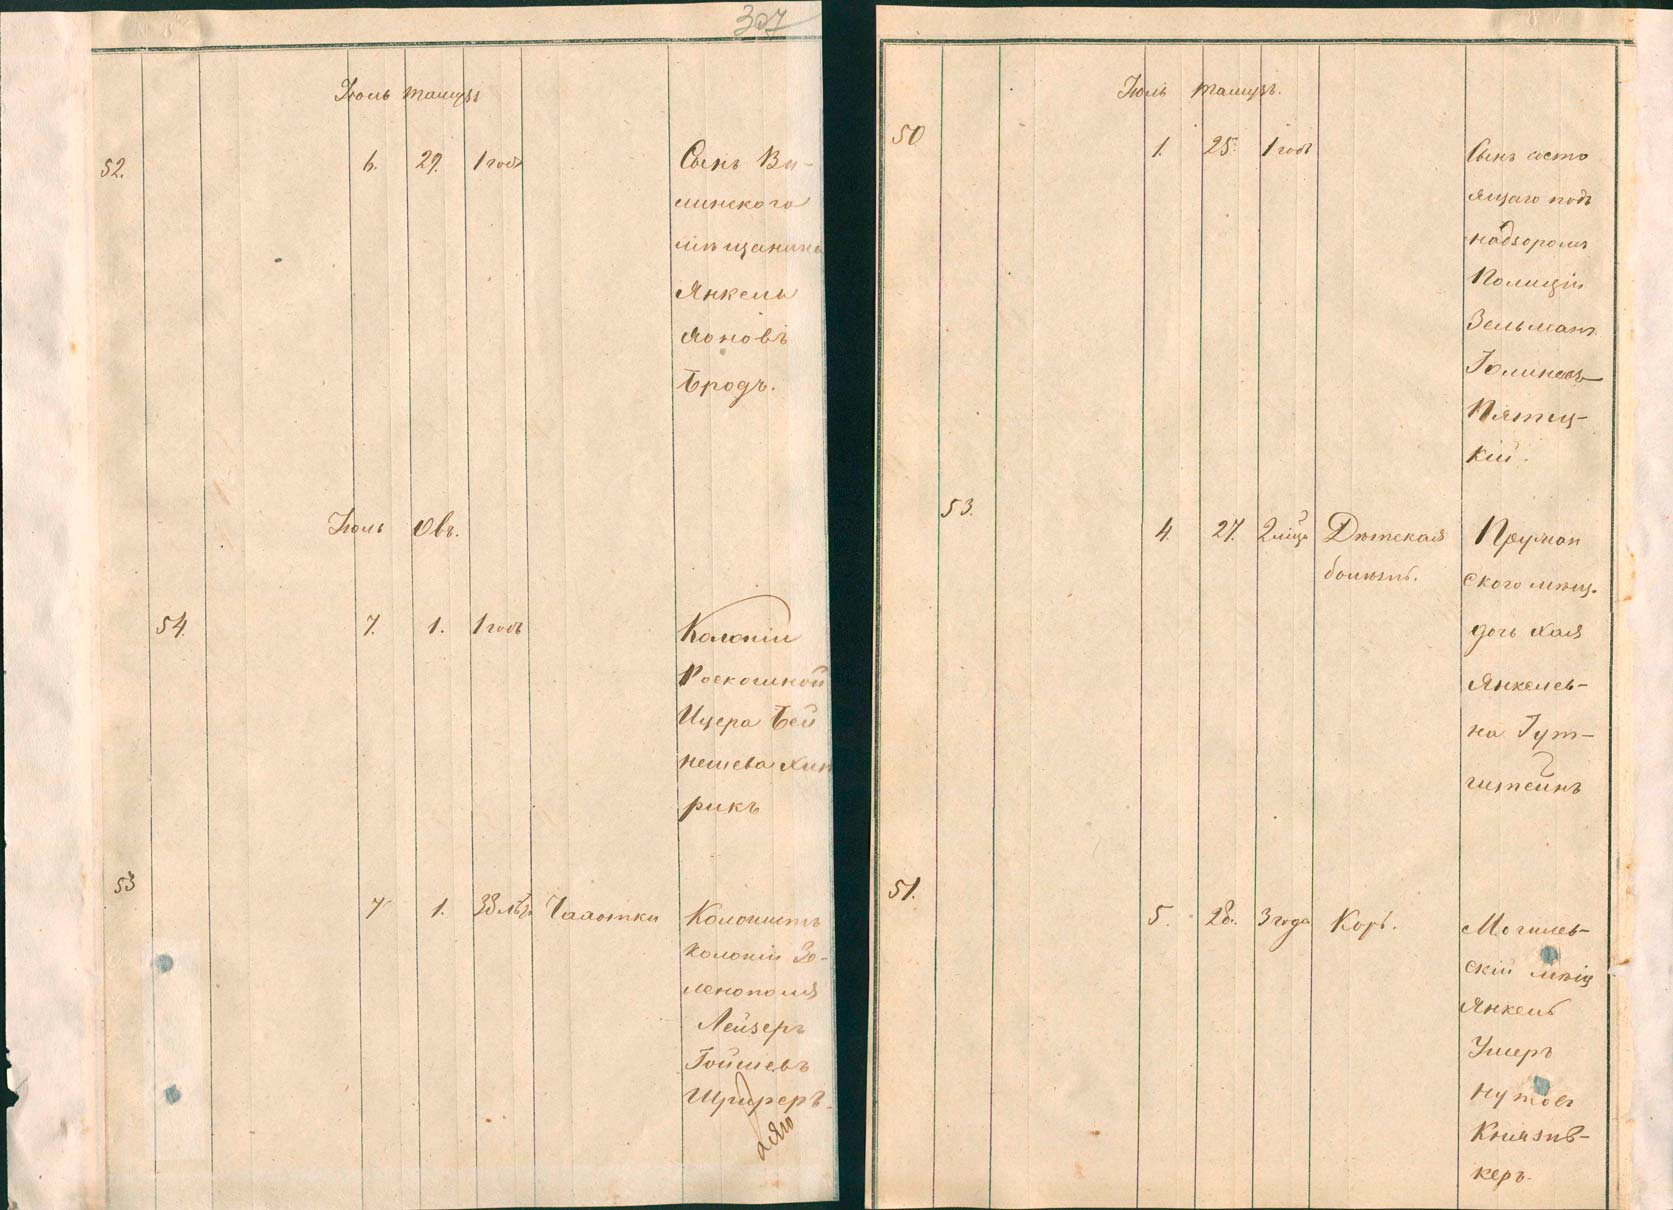 307
Іюль тамузъ
52. 6. 29. 1 годъ Сынъ Ви-
ленского
мѣщанина
Янкель
Бродъ.
Іюль Овъ.
54. 7. 1. 1 годъ Колоніи
Роскошной
Ицера Бей
рикъ
53 7 1. Чахотки Колонистъ
колоніи Зе-
ленополя
Лейзеръ
Шриферъ.
Іюль тамузъ.
50 1. 25. 1 годъ Сынъ состо
ящаго подъ
надзоромъ
Полиціи
Зельманъ
Пятиц-
кій.
53. 4. 27. 2 мѣц. Дѣтская Пружан
болѣзнь. ского мѣщ.
дочь Хая
Янкелев-
на Гут-
штейнъ
51. 5. 28. 3 года Корь. Могилев-
скій мѣщ
Янкель
Ушеръ
Нутовъ
Князев-
керъ.